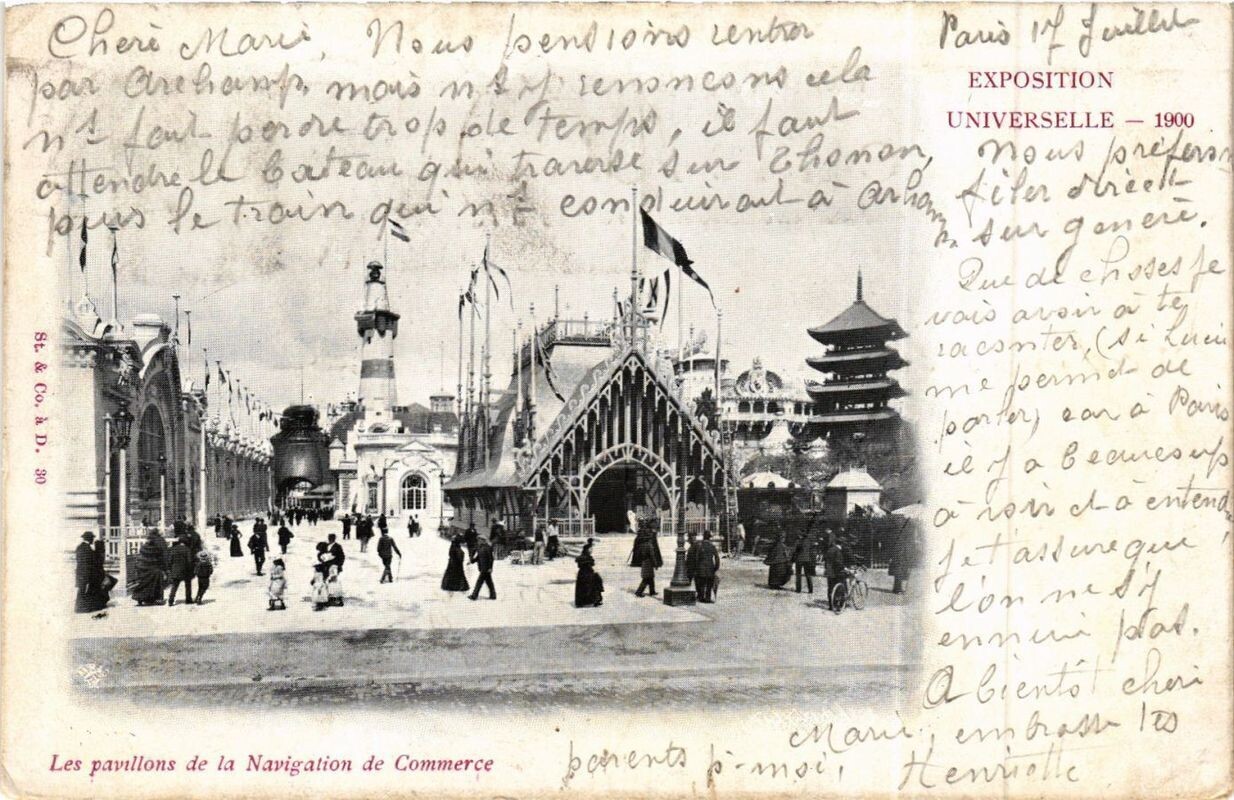 Paris 17 Juillet
EXPOSITION
UNIVERSELLE — 1900
Cheri Marie, Nous pensions rentrer
par Archamp, mais ns y renoncons cela
ns fait perdre trop de temps, il faut
attendre le bateau qui traverse sur Thonon,
puis le train qui ns conduirait à Archamp
Nous préferons
filer direct
sur genève.
Que de choses je
vais avoir à te
raconter, (si Lucie
me permet de
parler) car à Paris
il y a beaucoup
à voir et à entendre,
je t'assure que
l'on ne s'y
ennui pas.
A bientôt cheri
Marie, embrasse tes
parents p. moi, Henriette
St. & Co. à D. 30
Les pavillons de la Navigation de Commerce